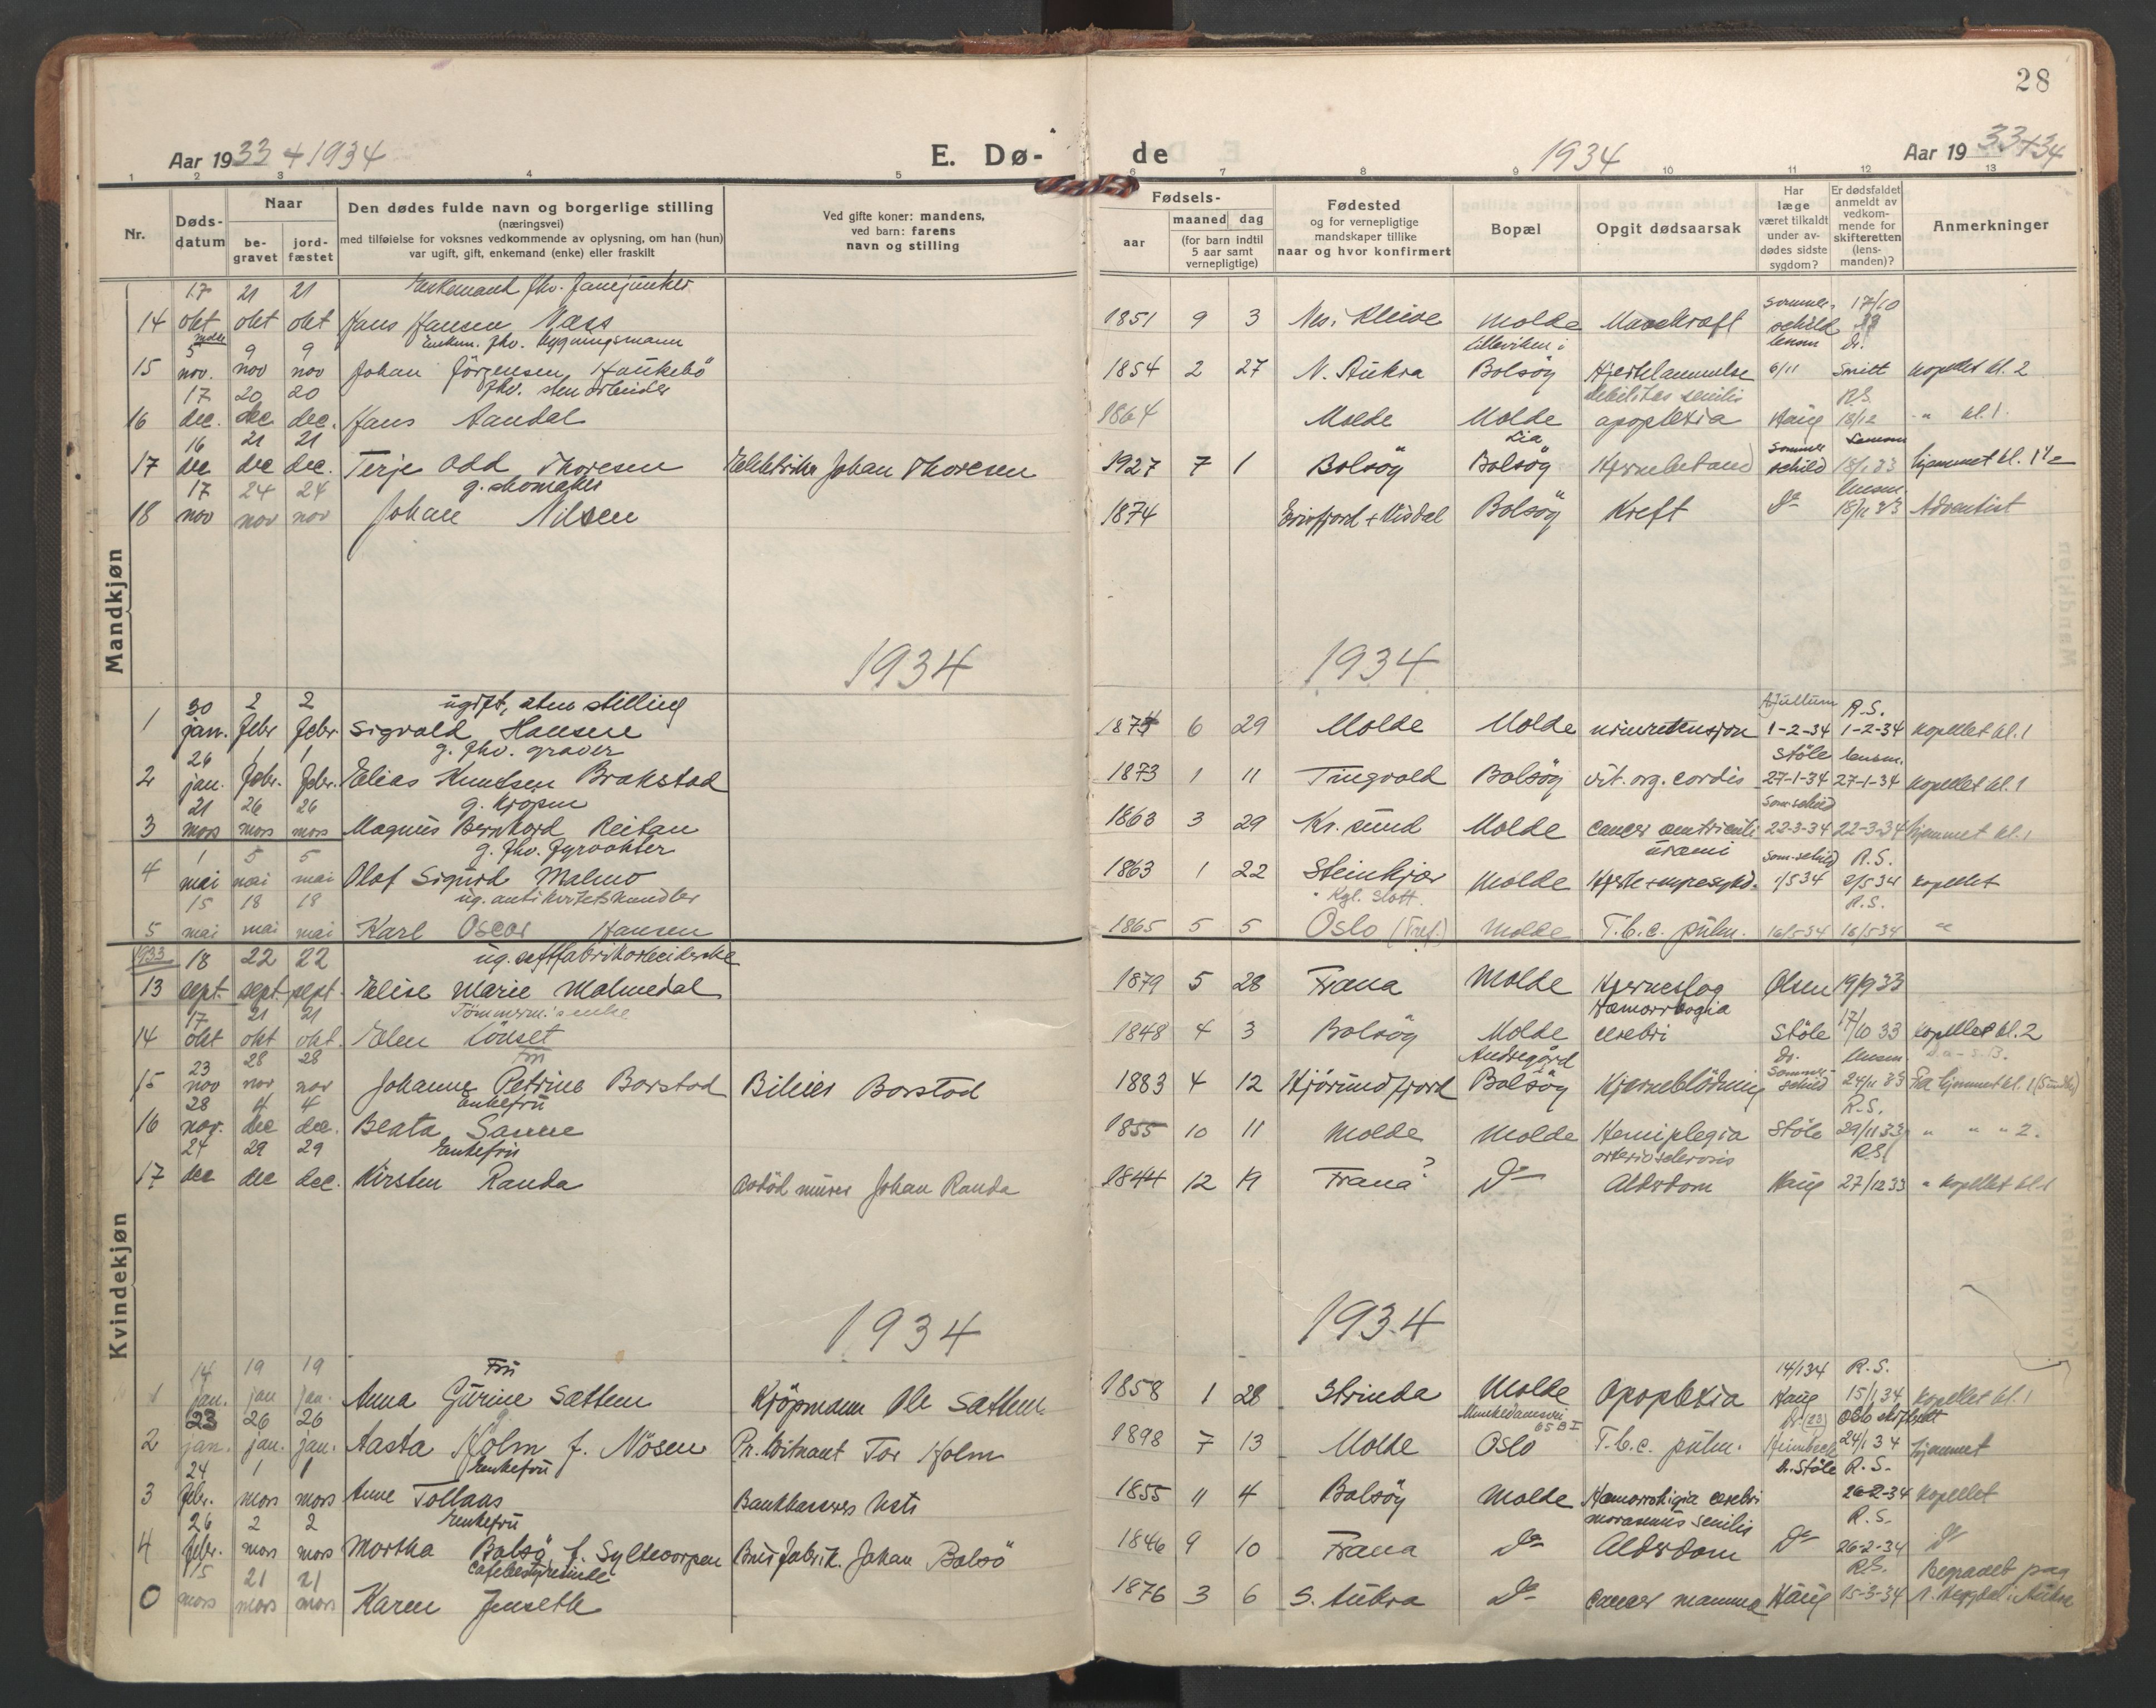 28
Aar 1933 + 1934
E. Dø-
de
1934
Aar 1933+34
1 2 3 4 5 6 7 8 9 10 11 12 13
Nr.
Døds-
datum
Naar
be-
gravet
jord-
fæstet
Den dødes fulde navn og borgerlige stilling
(næringsvei)
med tilføielse for voksnes vedkommende av oplysning, om han (hun)
var ugift, gift, enkemand (enke) eller fraskilt
Ved gifte koner: mandens,
ved barn: farens
navn og stilling
Fødsels-
aar
maaned dag
(for barn indtil
5 aar samt
vernepligtige)
Fødested
og for vernepligtige
mandskaper tillike
naar og hvor konfirmert
Bopæl
Opgit dødsaarsak
Har
læge
været tilkaldt
under av-
dødes sidste
sygdom?
Er dødsfaldet
anmeldt av
vedkom-
mende for
skifteretten
(lens-
manden)?
Anmerkninger
Mandkjøn
17 21 21 Enkemand fhv.
14 okt okt okt Hans Hansen Næss 1851 9 3 Kleive Molde 17/10
5 9 9 Enkem. fhv. bygningsmann Lilleviken i
15 nov. nov nov Johan Jörgensen Haukebö 1854 2 27 N. Aukra Bolsöy Hjertelammelse 6/11 Smitt kapellet kl. 2
17 20 20 fhv. sten arbeider debilitas senilis R.S.
16 dec. dec dec. Hans Aandal 1864 Molde Molde apoplexia Haug 18/12 " kl. 1.
16 21 21 Lia
17 dec dec dec. Terje Odd Thoresen Elektriker Johan Thoresen 1927 7 1 Bolsöy Bolsöy schild hjemmet kl.
17 24 24 g. skomaker lensm.
18 nov nov nov Johan Nilsen 1874 Eresfjord + Visdal Bolsöy Kreft Do 18/11 33 Adventist
1934
1934
30 2 2 ugift, uten stilling R.S.
1 jan. febr febr. Sigvald Hansen 1874 6 29 Molde Molde urinretensjon 1-2-34 1-2-34 kapellet kl. 1
26 1 1 g. fhv. graver Støle lensm.
2 jan. febr. febr. Elias Knudsen Brakstad 1873 1 11 Tingvold Bolsöy vit. org. cordis 27-1-34 27-1-34 kapellet kl. 1
21 26 26 g. kjøpm Som.schild
3 mars mars mars Magnus Bernhard Reitan 1863 3 29 Kr. sund Molde cancer ventriculi 22-3-34 22-3-34 hjemmet kl. 1
1 5 5 g. fhv. fyrvokter uræmi Som.schild R.S.
4 mai mai mai Olaf Sigurd Malmo 1863 1 22 Steinkjær Molde Hjerte + nyresykd. 1/5 34 2/5 34 kapellet
15 18 18 ug. antikvitetshandler Kgl. Slott. R.S.
5 mai mai mai Karl Oscar Hansen 1865 5 5 Oslo Molde T.b.c. pulm. 16/5-34 16/5 34 "
Kvindekjøn
1933 18 22 22 ug. saftfabrikarbeiderske
13 sept. sept. sept. Elise Marie Malmedal 1879 5 28 Fræna Molde Hjerneslag Olsen 19/9 33
17 21 21 Tömmerm.'s enke Hæmorrhagia
14 okt okt okt. Elen Lönset 1848 4 3 Bolsöy Molde cerebri Støle 17/10 33 kapellet kl. 2
23 28 28 Fru Andregård Dr. lensm.
15 nov nov nov Johanne Petrine Borstad Bileier Borstad 1883 4 12 Hjörundfjord Bolsöy Hjerneblödning Sommerschild 24/11 33 Fra hjemmet kl. 1
28 4 4 Enkefru R.S.
16 nov. dec dec. Beata Sanne 1855 10 11 Molde Molde Hemiplegia Støle 29/11 33 " " " 2.
24 29 29 Enkefru arteriosclerosis R.S.
17 dec dec dec. Kirsten Randa avdöd murer Johan Randa 1844 12 19 Fræna? Do Alderdom Haug 27/12 33 " kapellet kl. 1
1934
1934
14 19 19 Fru 14/1 34 R.S.
1 jan. jan jan. Anna Gurine Sættem Kjöpmann Ole Sættem 1858 1 28 Strinda Molde Apoplexia Haug 15/1 34 kapellet kl. 1
23 26 26 Munkedamsvei 65 B I Oslo skifterett
2 jan. jan. jan. Aasta Holm f. Nösen Pr. löitnant Tor Holm 1898 7 13 Molde Oslo T.b.c. pulm. Heimbeck 24/1 34 hjemmet
24 1 1 Enkefru Dr. Støle R.S.
3 febr. mars mars Anne Tollaas 1855 11 4 Bolsöy Molde Hæmorrhigia cerebri 26-2-34 kapellet
26 2 2 Enkefru marasmus senilis R.S.
4 febr. mars mars Martha Bolsö f. Syltevorpen Brusfabrik. Johan Bolsö 1846 9 10 Fræna Do Alderdom Do 26-2-34 Do
15 21 21 Cafebestyrerinde R.S. Begravet paa
0 mars mars mars Karen Jenseth 1876 3 6 S. Aukra Do cancer mamma Haug 15-3-34 Aukra